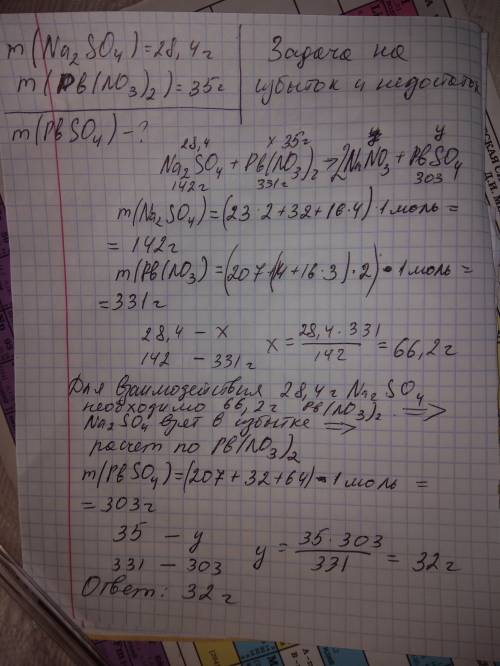 m(Na₂SO₄)=28,4г
m(Pb(NO₃)₂)=35г
m(PbSO₄)-?
Задача на
избыток и недостаток
28,4 x 35г y
Na₂SO₄+Pb(NO₃)₂→2NaNO₃+PbSO₄
142г 331г 303
m(Na₂SO₄)=(23·2+32+16·4)·1моль=
=142г
m(Pb(NO₃)=(207·(14+16·3)·2)·1моль=
=331г
28,4 – x
142 – 331г
x=28,4·331/142=66,2г
Для взаимодействия 28,4г Na₂SO₄
необходимо 66,2г Pb(NO₃)₂. ⟹
Na₂SO₄ взят в избытке ⟹
расчет по Pb(NO₃)₂
m(PbSO₄)=(207+32+64)·1моль =
=303г
35 – y
331 – 303
y=35·303/331=32г
Ответ: 32г